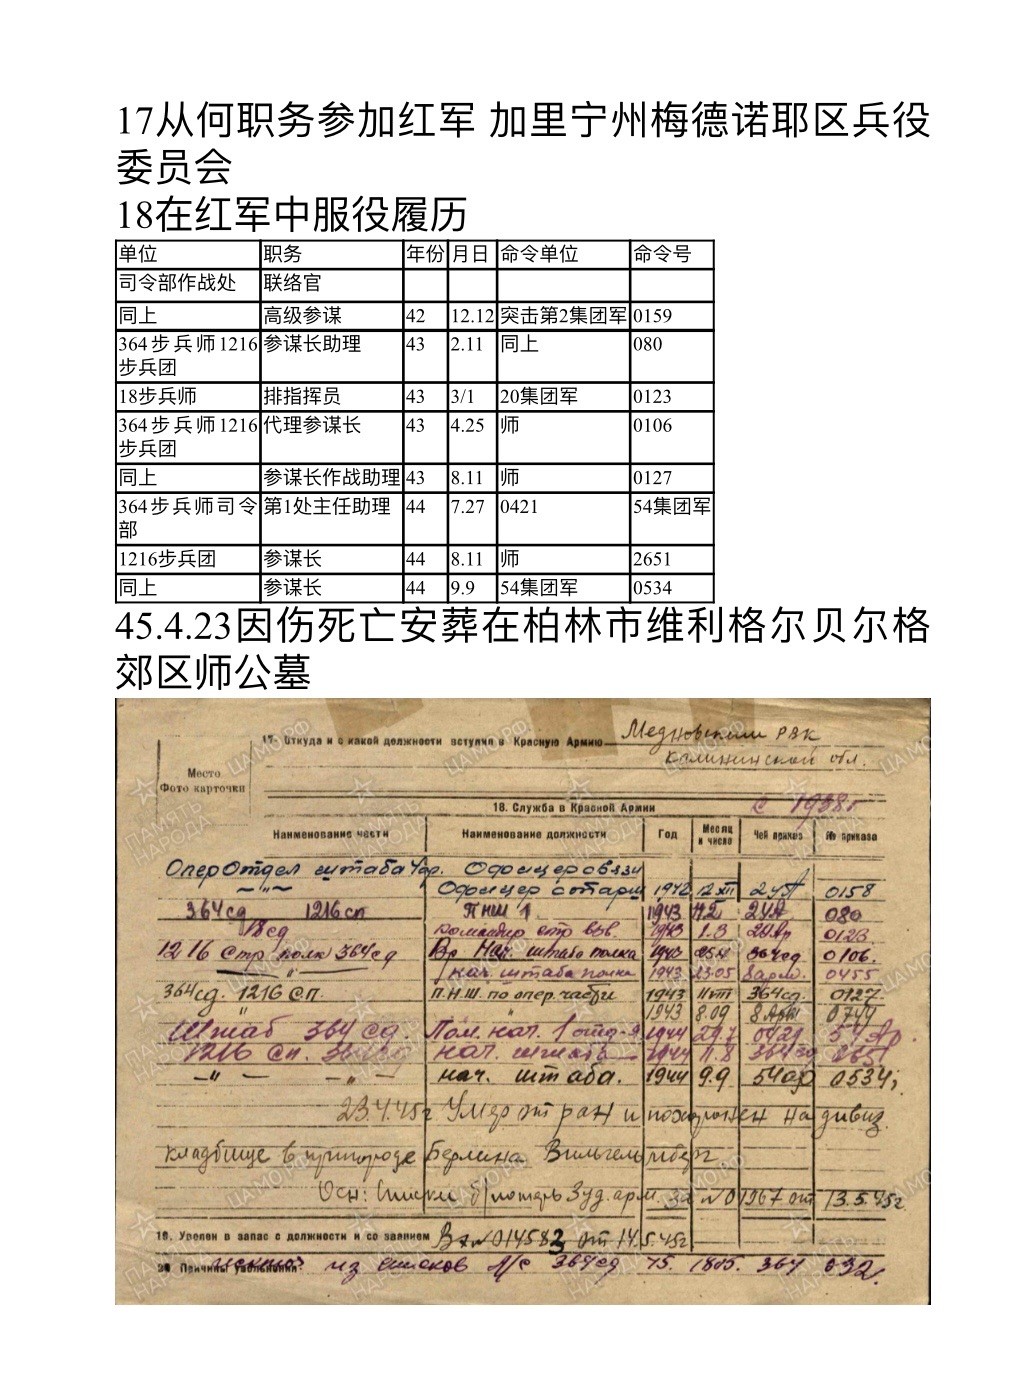 17从何职务参加红军 加里宁州梅德诺耶区兵役
委员会
18在红军中服役履历
单位 职务 年份 月日 命令单位 命令号
司令部作战处 联络官
同上 高级参谋 42 12.12 突击第2集团军 0159
364步兵师1216 参谋长助理 43 2.11 同上 080
步兵团
18步兵师 排指挥员 43 3/1 20集团军 0123
364步兵师1216 代理参谋长 43 4.25 师 0106
步兵团
同上 参谋长作战助理 43 8.11 师 0127
364步兵师司令 第1处主任助理 44 7.27 0421 54集团军
部
1216步兵团 参谋长 44 8.11 师 2651
同上 参谋长 44 9.9 54集团军 0534
45.4.23因伤死亡安葬在柏林市维利格尔贝尔格
郊区师公墓
17. Откуда и с какой должности вступил в Красную Армию Медновским РВК
Калининской обл.
Место
Фото карточки
18. Служба в Красной Армии с 1938г
Наименование части Наименование должности Год Месяц и число Чей приказ № приказа
ОперОтдел штаба Офицер связи
Офицер 1942 12 XII 2 УА 0158
364 сд 1216 сп ПНШ 1 1943 2УА 080
18 сд командир 1943 1.3 0123
1216 стр полк 364 сд Вр Нач. штаба полка 1943 364сд 0106.
" нач. штаба полка 1943 23.05 8 арм. 0455
364 сд. 1216 СП П.Н.Ш. по опер. части 1943 11 VIII 364 сд. 0127
" 1943 8.09 0744
Штаб 364 сд. Пом. нач. 1 отд-я 1944 27.7 0421 54 Ар
1216 Сп. нач. штаба 1944 11.8 364 сд
—"— —"— нач. штаба. 1944 9.9 54 ар 0534;
23.4.45г Умер от ран и похоронен на дивиз.
кладбище в пригороде Берлина Вильгельмсберг
Осн: Списки б/потерь 3 уд. арм. Вх №01967 от 13.5.45г.
19. Уволен в запас с должности и со званием Вх №014583 от 14.5.45г
20 Причины увольнения из списков Л/с 364 сд 032.
ПАМЯТЬ НАРОДА
ЦАМО РФ